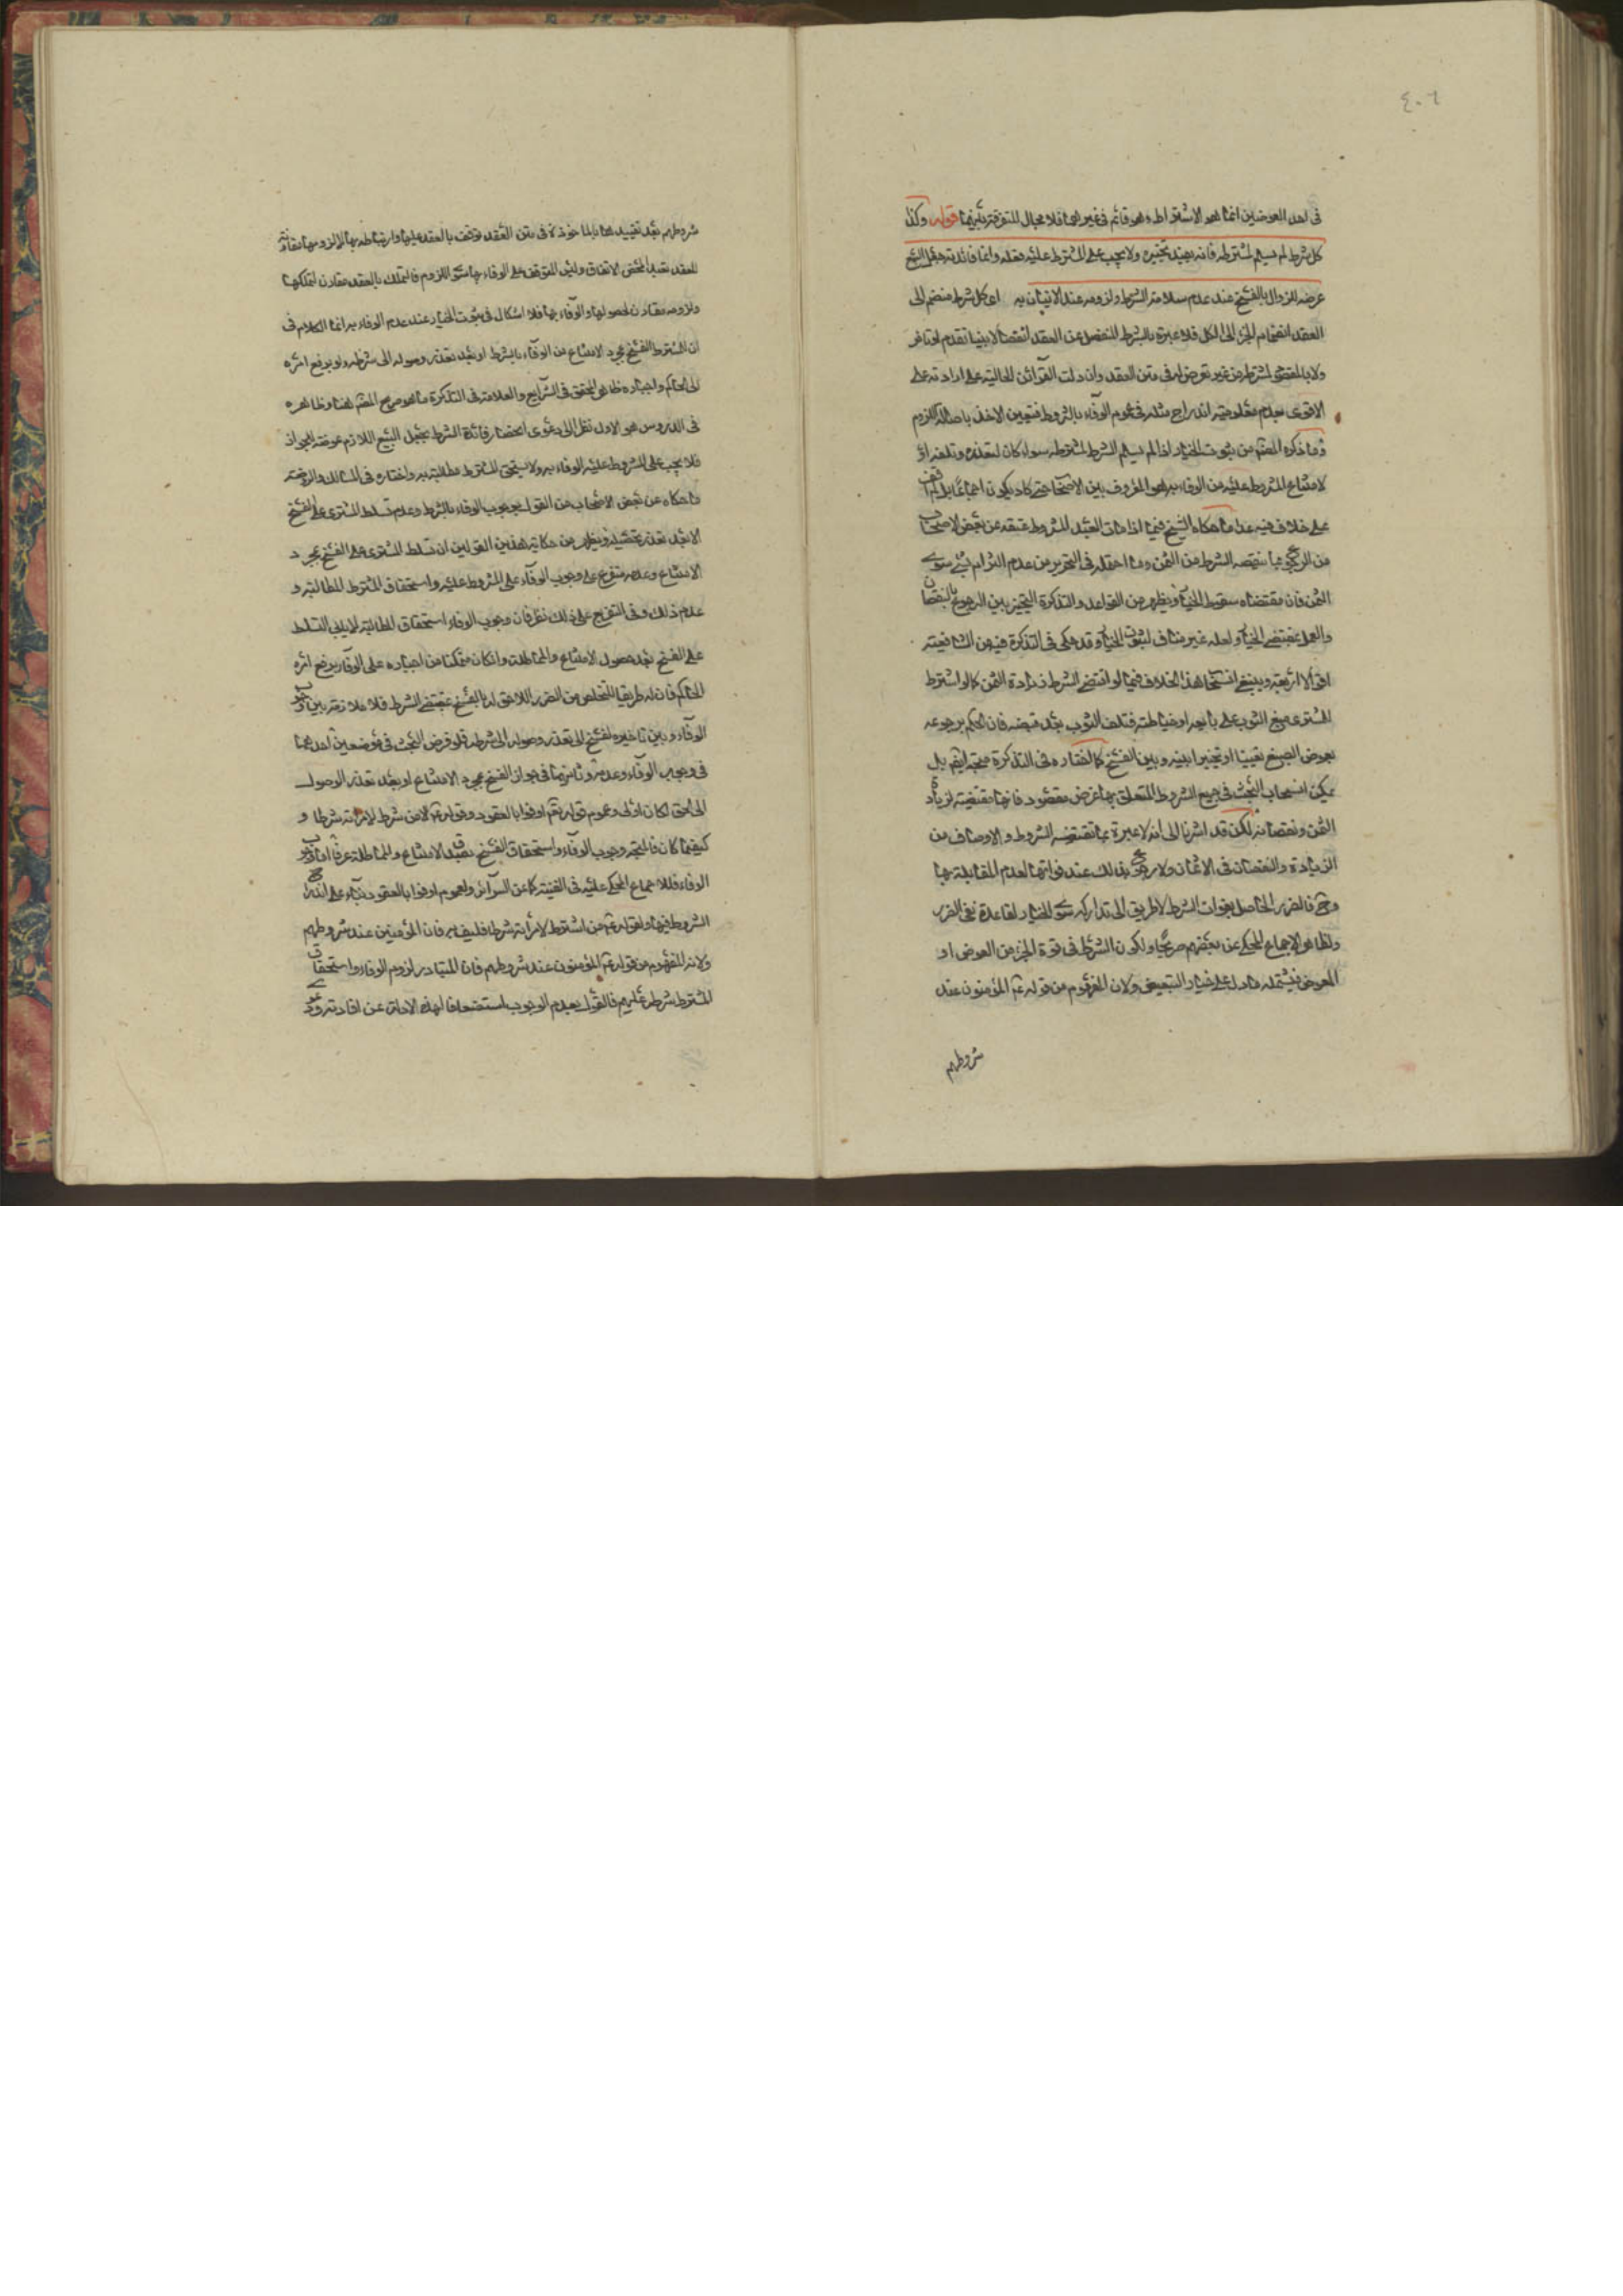 ٤٠٦
في احد العوضين انما هو الاشتراط وهو قائم في غيرهما فلا مجال للتفرقة بينهما قوله وكذا
كل شرط لم يسلم لمشترطه فانه يفيد تخييره ولا يجب على المشترط عليه فعله وانما فائدته جعل البيع
عرضة للزوال بالفسخ عند عدم سلامة الشرط ولزومه عند الاتيان به اي كل شرط منضم الى
العقد انضمام الجزء الى الكل فلا عبرة بالشرط المنفصل عن العقد
ولا بالمقصود لمشترطه من غير تعرض له في متن العقد وان دلت القرائن الحالية على ارادته على
الاقوى لعدم معلومية اندراج مثله في عموم الوفاء بالشروط فتعين الاخذ باصالة اللزوم
وما ذكره المصنف من ثبوت الخيار اذا لم يسلم الشرط لمشترطه سواء كان لتعذره وتلفه او
لامتناع المشروط عليه من الوفاء به هو المعروف بين الاصحاب حتى كاد يكون اجماعا بل لم اقف
على خلاف فيه عدا ما حكاه الشيخ فيما اذا مات العبد المشروط عتقه عن بعض الاصحاب
من الرجوع بما نقصه الشرط من الثمن وما احتمله في التحرير من عدم التزام شيء سوى
الثمن فان مقتضاه سقوط الخيار ويظهر من القواعد والتذكرة التخيير بين الرجوع بالنقصان
والعمل بمقتضى الخيار ولعله غير مناف لثبوت الخيار وقد حكى في التذكرة فيه من الشافعية
اقوالا اربعة وينبغي انسحاب هذا الخلاف فيما لو اقتضى الشرط زيادة الثمن كما لو اشترط
المشتري صبغ الثوب على بايعه او خياطته فتلف الثوب بعد قبضه فان الحكم برجوعه
بعوض الصبغ تعيينا او تخييرا بينه وبين الفسخ كما اختاره في التذكرة متجه ايضا بل
يمكن انسحاب البحث في جميع الشروط المتعلق بها غرض مقصود فانها مقتضية لزيادة
الثمن ونقصانه لكن قد اشرنا الى انه لا عبرة بما تقتضيه الشروط والاوصاف من
الزيادة والنقصان في الاثمان ولا رجوع بذلك عند فواتها لعدم المقابلة بها
وح فالضرر الحاصل بفوات الشرط لا طريق الى تداركه سوى الخيار لقاعدة نفي الضرر
ولظاهر الاجماع المحكي عن بعضهم صريحا ولكون الشرط في قوة الجزء من العوض او
المعوض فيشمله ما دل على خيار التبعيض ولان المفهوم من قوله ع المؤمنون عند
شروطهم
شروطهم بعد تقييدها بالماخوذة في متن العقد توقف بالعقد عليها وارتباطه بها
العقد الاتفاق وليس المتوقف على الوفاء بها سوى اللزوم فالتملك بالعقد مقارن لتملكها
ولزومه مقارن لحصولها والوفاء بها فلا اشكال في ثبوت الخيار عند عدم الوفاء به انما الكلام في
ان للمشترط الفسخ بمجرد الامتناع من الوفاء بالشرط او بعد تعذر وصوله الى شرطه ولو برفع امره
الى الحاكم واجباره ظاهر المحقق في الشرايع والعلامة في التذكرة كما هو صريح المصنف هنا وظاهره
في الدروس هو الاول نظرا الى دعوى انحصار فائدة الشرط بجعل البيع اللازم عرضة للجواز
فلا يجب على المشروط عليه الوفاء به ولا يستحق المشترط مطالبته به واختاره في المسالك والروضة
ما حكاه عن بعض الاصحاب من القول بوجوب الوفاء بالشرط وعدم تسلط المشتري على الفسخ
الا بعد تعذر تحصيله ويظهر من حكاية هذين القولين ان تسلط المشتري على الفسخ بمجرد
الامتناع وعدمه متفرع على وجوب الوفاء على المشروط عليه واستحقاق المشترط للمطالبة و
عدم ذلك وفي التفريع على ذلك نظر فان وجوب الوفاء واستحقاق المطالبة لا ينافي التسلط
على الفسخ بعد حصول الامتناع والمماطلة وان كان متمكنا من اجباره على الوفاء برفع امره
الحاكم فان له طريقا للتخلص من الضرر اللاحق له بالفسخ بمقتضى الشرط فلا ملازمة بين وجوب
الوفاء وبين تاخير الفسخ الى تعذر وصوله الى شرطه فلو فرض البحث في موضعين احدهما
في وجوب الوفاء وعدمه وثانيهما في جواز الفسخ بمجرد الامتناع او بعد تعذر الوصول
الى الحق لكان اولى وعموم قوله تعالى اوفوا بالعقود وقوله ع من شرط لامرأته شرطا و
كيفما كان فالمتجه وجوب الوفاء واستحقاق الفسخ بعد الامتناع والمماطلة عرفا اما وجوب
الوفاء فللاجماع المحكي عليه في الغنية كما عن السرائر ولعموم اوفوا بالعقود بناء على اندراج
الشروط فيها ولقوله ع من اشترط لامرأته شرطا فليف به فان المؤمنين عند شروطهم
ولانه المفهوم من قوله ع المؤمنون عند شروطهم فان المتبادر لزوم الوفاء واستحقاق
المشترط شرطه عليهم فالقول بعدم الوجوب استضعافا لهذه الادلة عن افادته